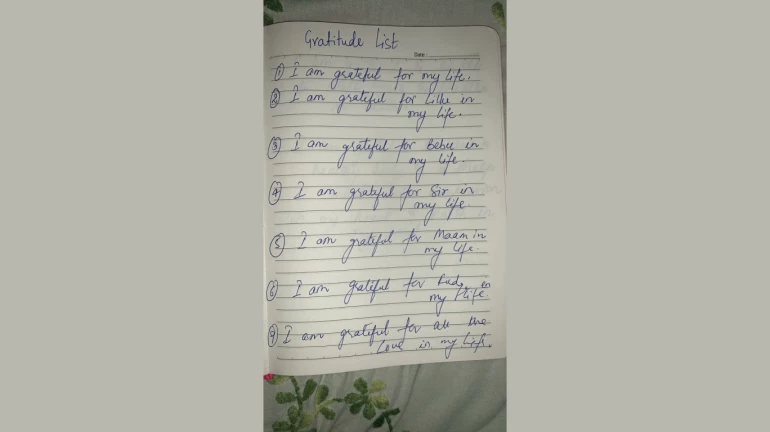 Gratitude List
Date:
① I am grateful for my life.
② I am grateful for Lillu in
my life.
③ I am grateful for Bebu in
my life.
④ I am grateful for Sir in
my life
⑤ I am grateful for Maam in
my life.
⑥ I am grateful for in
my life.
⑦ I am grateful for all the
Love in my life.